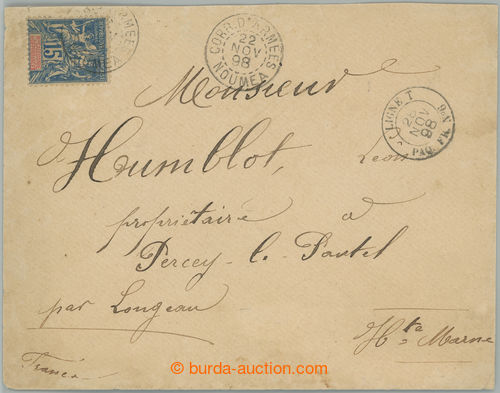 15
CORR. D'ARMEES
22
NOV
98
NOUMEA
LIGNE T
NOV
98
PAQ. FR.
Monsieur
Humblot, Léon
propriétaire à
Percey-le-Pautel
par Longeau
Hte Marne
France
burda-auction.com